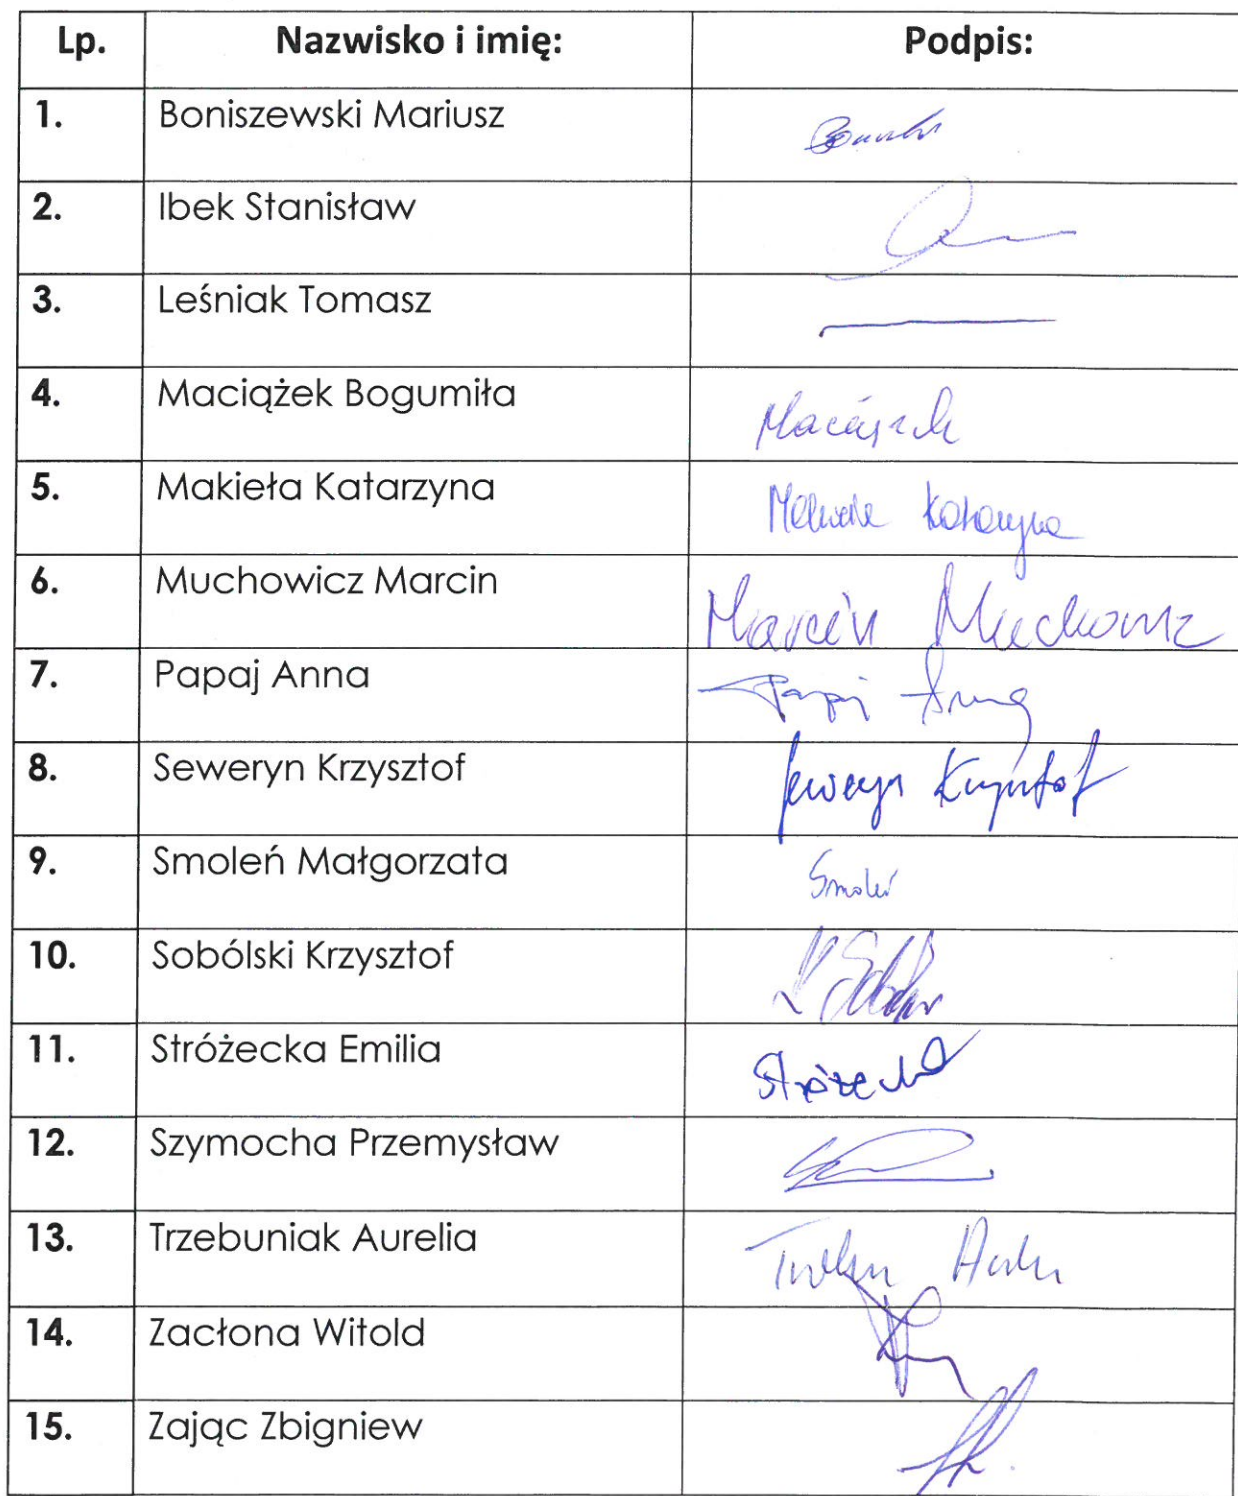 Lp. Nazwisko i imię: Podpis:
1. Boniszewski Mariusz
2. Ibek Stanisław
3. Leśniak Tomasz
4. Maciążek Bogumiła
5. Makieła Katarzyna Katarzyna
6. Muchowicz Marcin Marcin Muchowicz
7. Papaj Anna
8. Seweryn Krzysztof Seweryn Krzysztof
9. Smoleń Małgorzata Smoleń
10. Sobólski Krzysztof
11. Stróżecka Emilia
12. Szymocha Przemysław
13. Trzebuniak Aurelia
14. Zacłona Witold
15. Zając Zbigniew